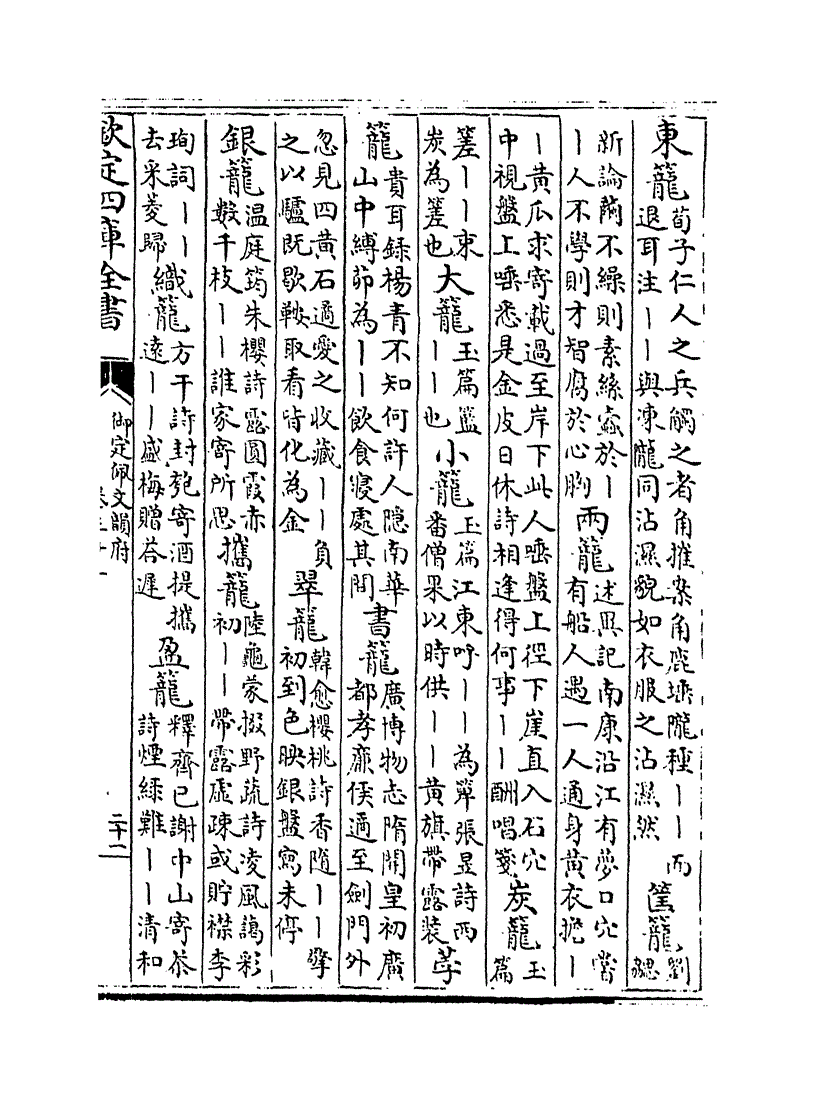 東籠荀子仁人之兵觸之者角摧案角鹿埵隴種丨丨而退耳注丨丨與凍隴同沾濕貌如衣服之沾濕然筐籠劉勰
新論繭不繰則素絲蠹於丨丨人不學則才智腐於心胸兩籠述異記南康沿江有夢口穴嘗有船人遇一人通身黃衣擔丨
丨黃瓜求寄載過至岸下此人唾盤上徑下崖直入石穴中視盤上唾悉是金皮日休詩相逢得何事丨丨酬唱箋炭籠玉篇
丨丨朿炭為也大籠玉篇籃丨丨也小籠玉篇江東呼丨丨為簞張昱詩西番僧果以時供丨丨黃旗帶露裝茅
籠貴耳錄楊青不知何許人隱南華山中縛茆為丨丨飲食寢處其間書籠廣博物志隋開皇初廣都孝廉侯遹至劍門外
忽見四黃石遹愛之收藏丨丨負之以驢既歇鞍取看皆化為金翠籠韓愈櫻桃詩香隨丨丨擎初到色映銀盤寫未停
銀籠溫庭筠朱櫻詩露圓霞赤數千枝丨丨誰家寄所思攜籠陸龜蒙掇野蔬詩淩風藹彩初丨丨帶露虛疎或貯襟李
珣詞丨丨去采菱歸織籠方干詩封匏寄酒提攜遠丨丨盛梅贈荅遲盈籠釋齊已謝中山寄茶詩煙綠難丨丨清和
欽定四庫全書
御定佩文韻府
二十二